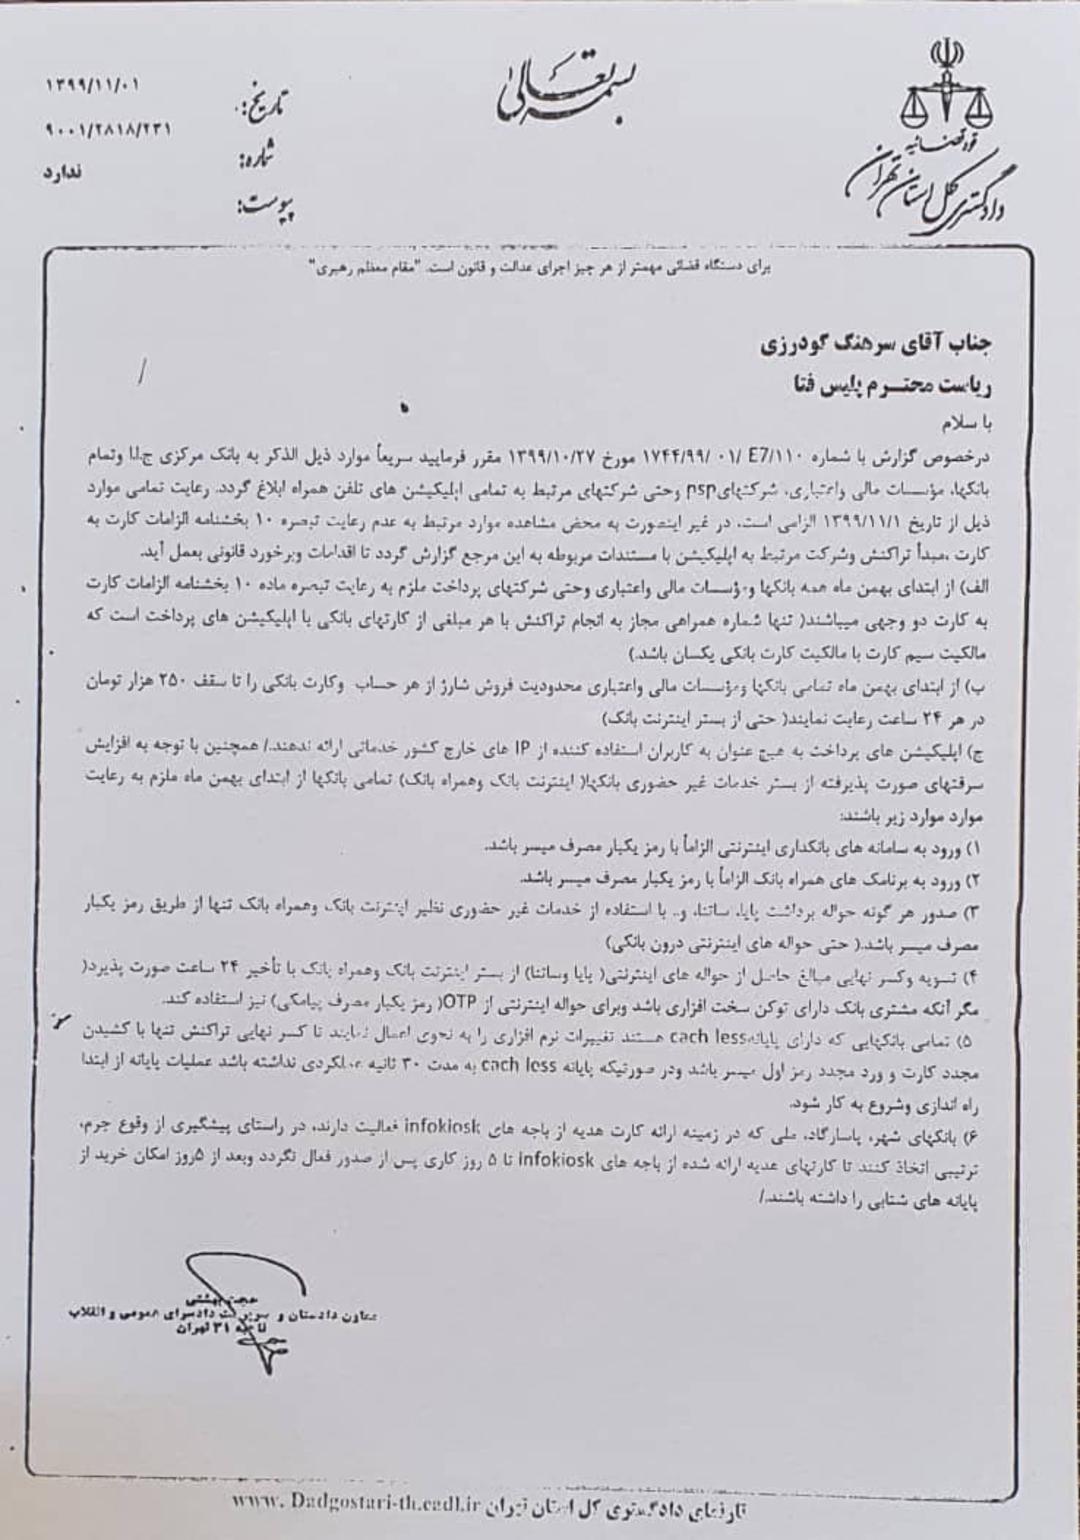 بسمه تعالی
قوه قضائیه
دادگستری کل استان تهران
تاریخ: ۱۳۹۹/۱۱/۰۱
شماره: ۹۰۰۱/۲۸۱۸/۲۳۱
پیوست: ندارد
برای دستگاه قضائی مهمتر از هر چیز اجرای عدالت و قانون است. "مقام معظم رهبری"
جناب آقای سرهنگ گودرزی
ریاست محترم پلیس فتا
با سلام
درخصوص گزارش با شماره ۱۱۰/E7 /۰۱ /۱۷۴۴/۹۹ مورخ ۱۳۹۹/۱۰/۲۷ مقرر فرمایید سریعاً موارد ذیل الذکر به بانک مرکزی ج.ا.ا وتمام
بانکها، مؤسسات مالی واعتباری، شرکتهای psp وحتی شرکتهای مرتبط به تمامی اپلیکیشن های تلفن همراه ابلاغ گردد. رعایت تمامی موارد
ذیل از تاریخ ۱۳۹۹/۱۱/۱ الزامی است، در غیر اینصورت به محض مشاهده موارد مرتبط به عدم رعایت تبصره ۱۰ بخشنامه الزامات کارت به
کارت ،مبدأ تراکنش وشرکت مرتبط به اپلیکیشن با مستندات مربوطه به این مرجع گزارش گردد تا اقدامات وبرخورد قانونی بعمل آید.
الف) از ابتدای بهمن ماه همه بانکها ومؤسسات مالی واعتباری وحتی شرکتهای پرداخت ملزم به رعایت تبصره ماده ۱۰ بخشنامه الزامات کارت
به کارت دو وجهی میباشند( تنها شماره همراهی مجاز به انجام تراکنش با هر مبلغی از کارتهای بانکی با اپلیکیشن های پرداخت است که
مالکیت سیم کارت با مالکیت کارت بانکی یکسان باشد.)
ب) از ابتدای بهمن ماه تمامی بانکها ومؤسسات مالی واعتباری محدودیت فروش شارژ از هر حساب وکارت بانکی را تا سقف ۲۵۰ هزار تومان
در هر ۲۴ ساعت رعایت نمایند( حتی از بستر اینترنت بانک)
ج) اپلیکیشن های پرداخت به هیچ عنوان به کاربران استفاده کننده از IP های خارج کشور خدماتی ارائه ندهند./ همچنین با توجه به افزایش
سرقتهای صورت پذیرفته از بستر خدمات غیر حضوری بانکها( اینترنت بانک وهمراه بانک) تمامی بانکها از ابتدای بهمن ماه ملزم به رعایت
موارد موارد زیر باشند:
۱) ورود به سامانه های بانکداری اینترنتی الزاماً با رمز یکبار مصرف میسر باشد.
۲) ورود به برنامک های همراه بانک الزاماً با رمز یکبار مصرف میسر باشد.
۳) صدور هر گونه حواله برداشت پایا، ساتنا، و.. با استفاده از خدمات غیر حضوری نظیر اینترنت بانک وهمراه بانک تنها از طریق رمز یکبار
مصرف میسر باشد.( حتی حواله های اینترنتی درون بانکی)
۴) تسویه وکسر نهایی مبالغ حاصل از حواله های اینترنتی( پایا وساتنا) از بستر اینترنت بانک وهمراه بانک با تأخیر ۲۴ ساعت صورت پذیرد(
مگر آنکه مشتری بانک دارای توکن سخت افزاری باشد وبرای حواله اینترنتی از OTP( رمز یکبار مصرف پیامکی) نیز استفاده کند.
۵) تمامی بانکهایی که دارای پایانه cach less هستند تغییرات نرم افزاری را به نحوی اعمال نمایند تا کسر نهایی تراکنش تنها با کشیدن
مجدد کارت و ورد مجدد رمز اول میسر باشد ودر صورتیکه پایانه cach less به مدت ۳۰ ثانیه عملکردی نداشته باشد عملیات پایانه از ابتدا
راه اندازی وشروع به کار شود.
۶) بانکهای شهر، پاسارگاد، ملی که در زمینه ارائه کارت هدیه از باجه های infokiosk فعالیت دارند، در راستای پیشگیری از وقوع جرم،
ترتیبی اتخاذ کنند تا کارتهای هدیه ارائه شده از باجه های infokiosk تا ۵ روز کاری پس از صدور فعال نگردد وبعد از ۵روز امکان خرید از
پایانه های شتابی را داشته باشند./
حجت بهشتی
معاون دادستان و سرپرست دادسرای عمومی و انقلاب
ناحیه ۳۱ تهران
تارنمای دادگستری کل استان تهران www. Dadgostari-th.eadl.ir